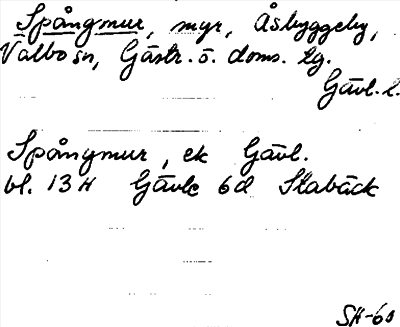 Spångmur, myr, Åsbyggeby,
Valbo sn, Gästr. ö. doms. tg.
Gävl. l.
Spångmur, ek Gävl.
bl. 13H Gävle 6d Stabäck
SH-60